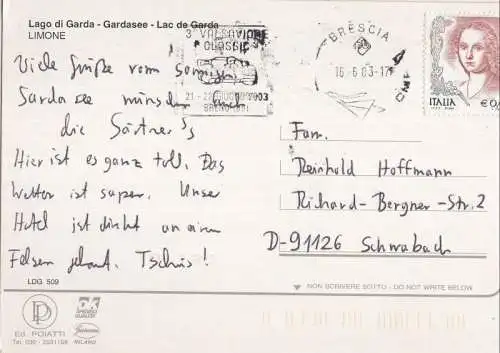 Lago di Garda - Gardasee - Lac de Garda
LIMONE
3° VALSAVIORE
CLASSIC
BRESCIA
16-6-03-17
ITALIA
Viele Grüße vom sonnigen
Gardasee wünschen euch
die Gärtner's
Hier ist es ganz toll. Das
Wetter ist super. Unser
Hotel ist direkt an einen
Felsen gebaut. Tschüs!
Fam.
Reinhold Hoffmann
Richard-Bergner-Str. 2
D-91126 Schwabach
LDG 509
NON SCRIVERE SOTTO - DO NOT WRITE BELOW
Ed. POIATTI
OK
MILANO